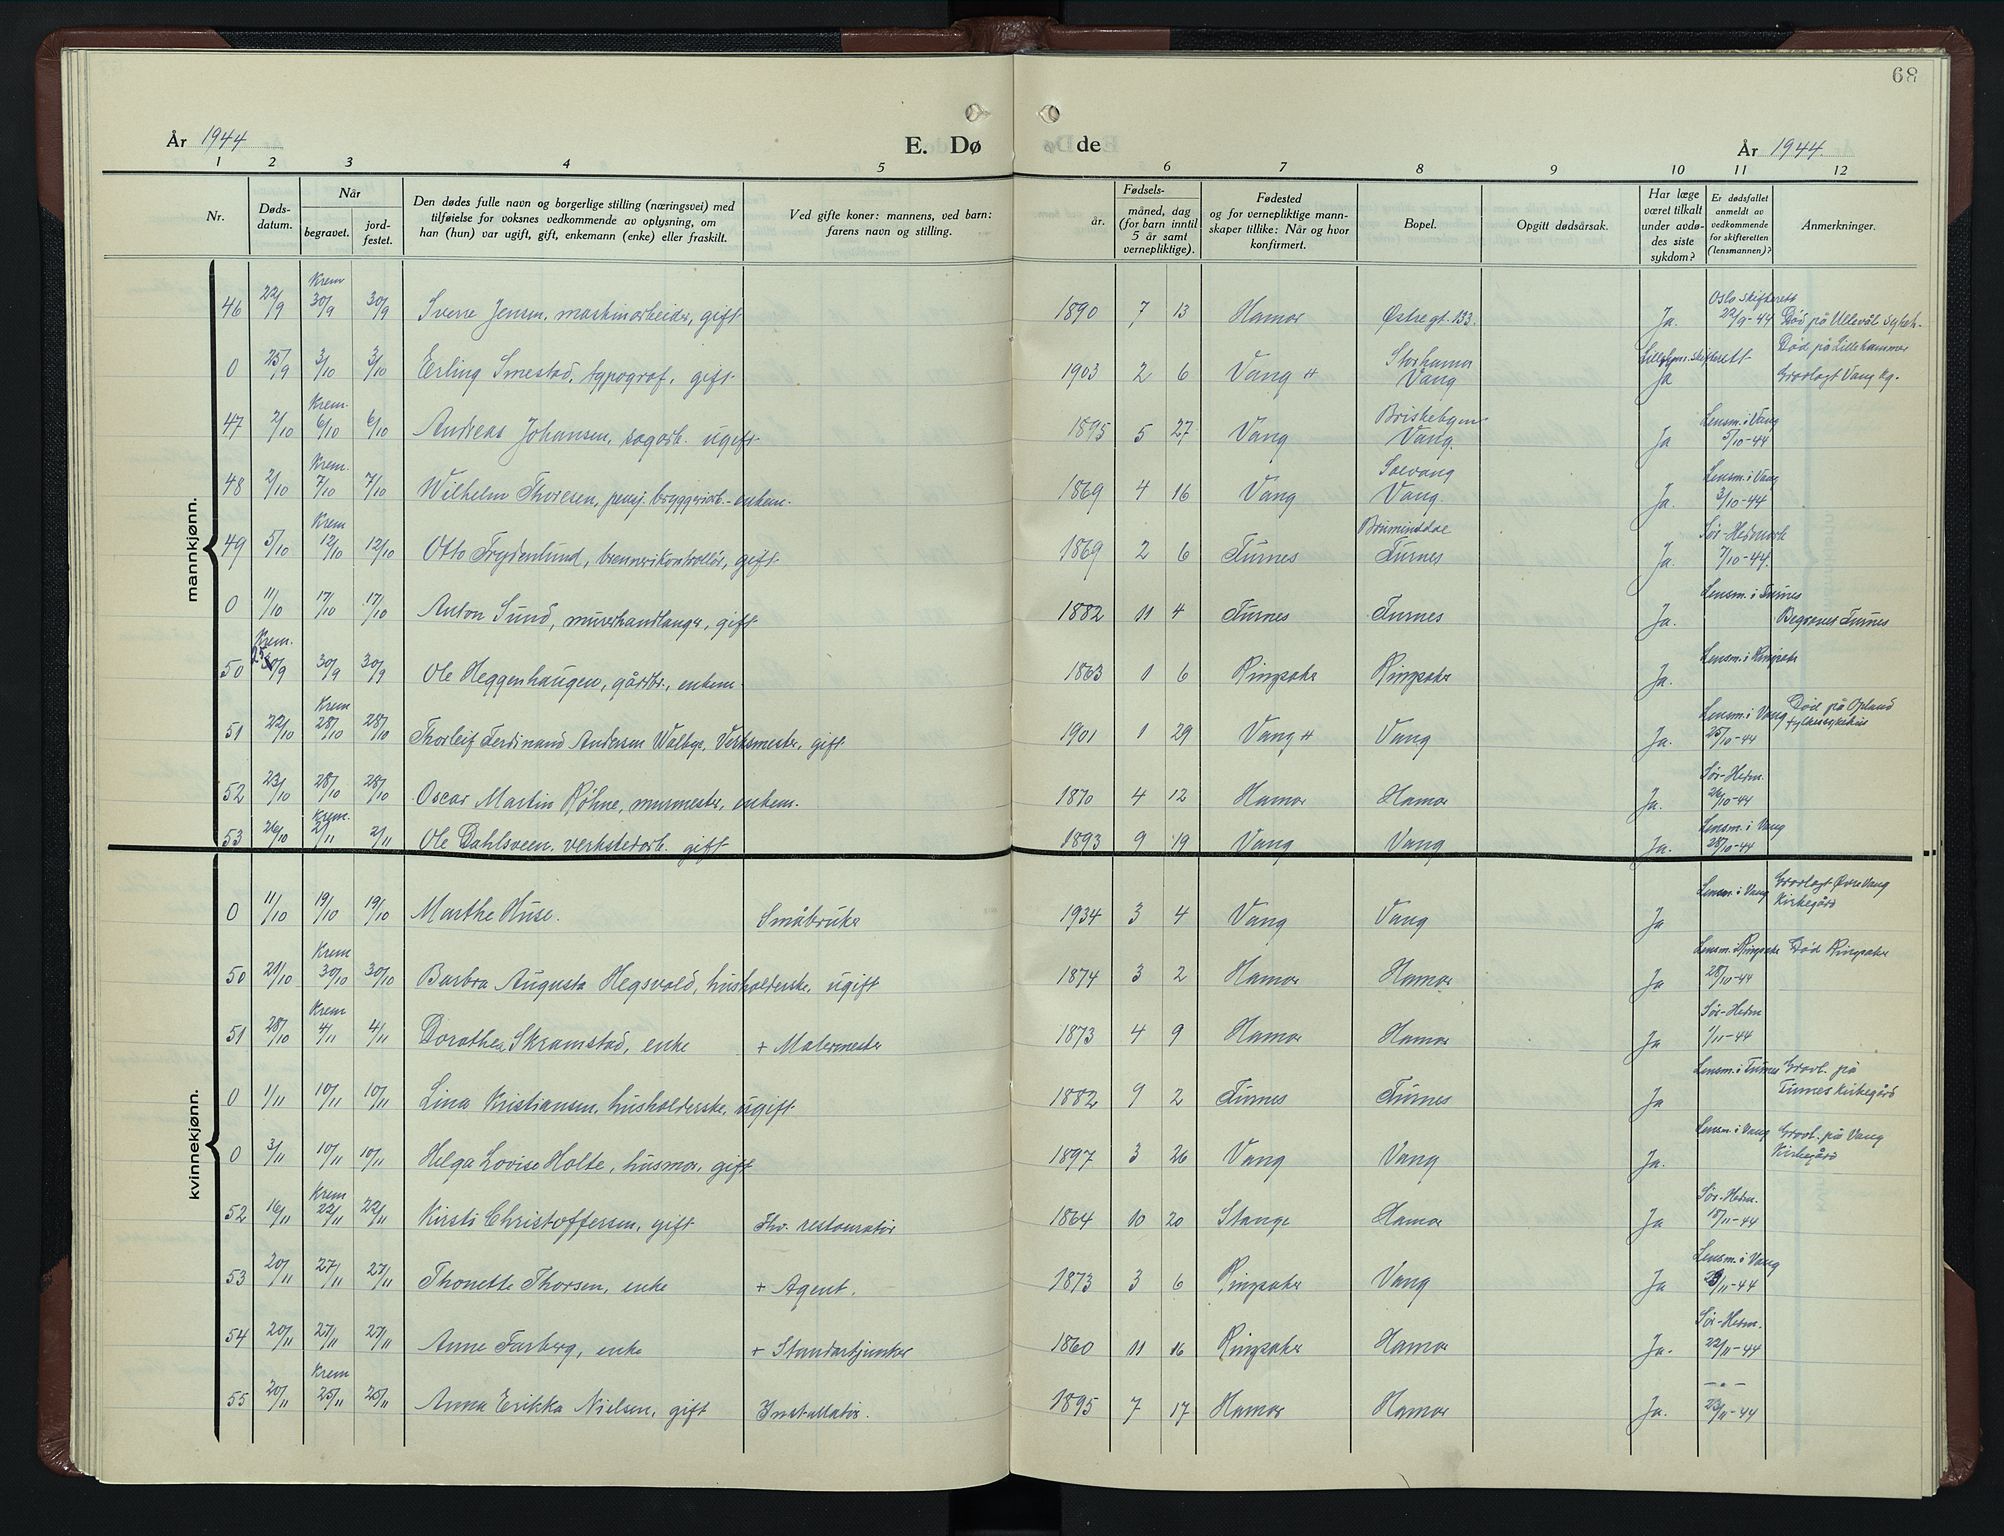 68
År 1944 E. Dø de År 1944.
1 2 3 4 5 6 7 8 9 10 11 12
Nr. Døds-datum. Når begravet. jord-festet. Den dødes fulle navn og borgerlige stilling (næringsvei) med tilføielse for voksnes vedkommende av oplysning, om han (hun) var ugift, gift, enkemann (enke) eller fraskilt. Ved gifte koner: mannens, ved barn: farens navn og stilling. Fødsels- år. måned, dag (for barn inntil 5 år samt vernepliktige). Fødested og for vernepliktige mann-skaper tillike: Når og hvor konfirmert. Bopel. Opgitt dødsårsak. Har læge været tilkalt under avdø-des siste sykdom? Er dødsfallet anmeldt av vedkommende for skifteretten (lensmannen)? Anmerkninger.
mannkjønn.
46 22/9 Krem 30/9 30/9 Sverre Jensen, maskinarbeider, gift 1890 7 13 Hamar Østregt. 133. Ja. Oslo skifterett 22/9-44 Død på Ullevål sykeh.
0 25/9 3/10 3/10 Erling Smestad, typograf, gift 1903 2 6 Vang H Storhamar Vang Lilleham. skifterett Ja Død på Lillehammer Gravlagt Vang Kg.
47 2/10 Krem. 6/10 6/10 Andreas Johansen, sagarb. ugift 1895 5 27 Vang Briskebyen Vang. Ja Lensm. i Vang 5/10-44
48 2/10 Krem. 7/10 7/10 Wilhelm Thoresen, pensj. bryggeriarb.- enkem. 1869 4 16 Vang Solvang Vang. Ja. Lensm. i Vang 3/10-44
49 5/10 Krem 12/10 12/10 Otto Frydenlund, brennerikontrollør, gift 1869 2 6 Furnes Brumunddal Furnes Ja. Sør-Hedmark 7/10-44.
0 11/10 17/10 17/10 Anton Sund, murerhandlanger, gift 1882 11 4 Furnes Furnes Ja. Lensm. i Furnes Begravet Furnes
50 Krem. 30/9 30/9 Ole Heggenhaugen, gårdbr., enkem. 1863 1 6 Ringsaker Ringsaker Ja. Lensm. i Ringsaker
51 22/10 Krem 28/10 28/10 Thorleif Ferdinand Andersen Walbye, Verksmester, gift 1901 1 29 Vang H Vang Ja. Lensm. i Vang 25/10-44 Død på Opland fylkessykehus
52 23/10 28/10 28/10 Oscar Martin Røhne, murmester, enkem. 1870 4 12 Hamar Hamar Ja. Sør-Hedm. 26/10-44
53 26/10 Krem. 2/11 2/11 Ole Dahlsveen, verkstedarb. gift 1893 9 19 Vang Vang Ja. Lensm. i Vang 28/10-44
kvinnekjønn.
0 11/10 19/10 19/10 Marthe Huse. Småbruker 1934 3 4 Vang Vang Ja Lensm. i Vang Gravlagt Øvre Vang Kirkegård
50 21/10 Krem 30/10 30/10 Barbra Augusta Hegsvold, husholderske, ugift 1874 3 2 Hamar Hamar Ja Lensm. i Ringsaker 28/10-44 Død Ringsaker
51 28/10 Krem 4/11 4/11 Dorothea Skramstad, enke + Malermester 1873 4 9 Hamar Hamar Ja Sør-Hedm 1/11-44
0 1/11 10/11 10/11 Lina Kristiansen, husholderske, ugift 1882 9 2 Furnes Furnes Ja Lensm. i Furnes Gravl. på Furnes Kirkegård
0 3/11 10/11 10/11 Helga Lovise Holte, husmor, gift 1897 3 26 Vang Vang Ja. Lensm. i Vang Gravl. på Vang Kirkegård
52 16/11 Krem 22/11 22/11 Kirsti Christoffersen, gift Fhv. restauratør 1864 10 20 Stange Hamar Ja Sør-Hedm. 18/11-44
53 20/11 27/11 27/11 Thonette Thorsen, enke + Agent. 1873 3 6 Ringsaker Vang Ja Lensm. i Vang 23/11-44
54 20/11 27/11 27/11 Anne Farberg, enke + Standartjunker 1860 11 16 Ringsaker Hamar Ja. Sør-Hedm. 22/11-44
55 20/11 Krem 25/11 25/11 Anna Erikka Nielsen, gift Installatør. 1895 7 17 Hamar Hamar Ja. - " - 23/11-44